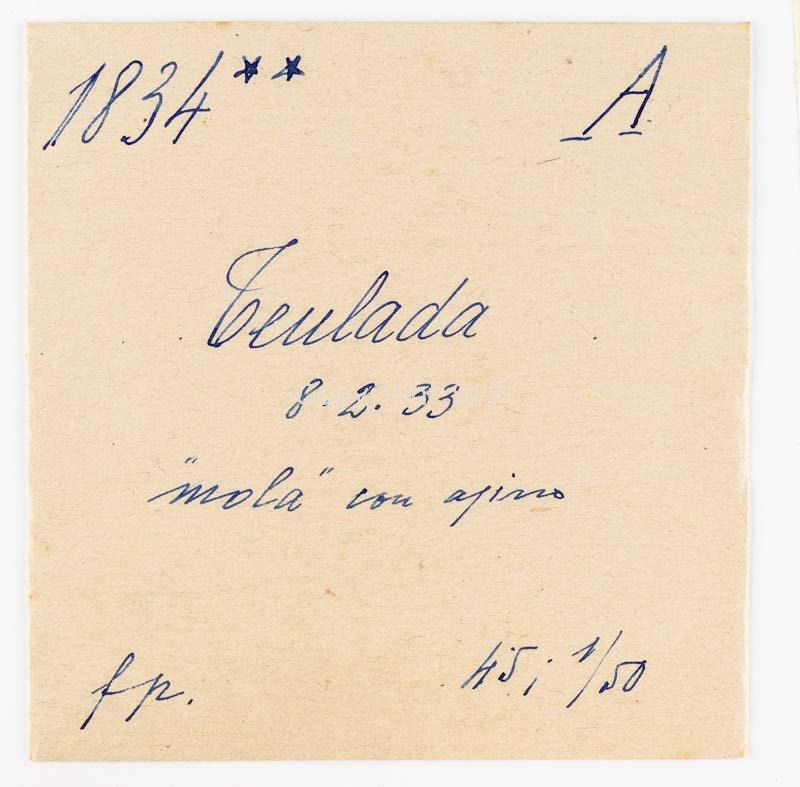 1834** A
Teulada
8.2.33
"mola" con asino
fp.
45; 1/50